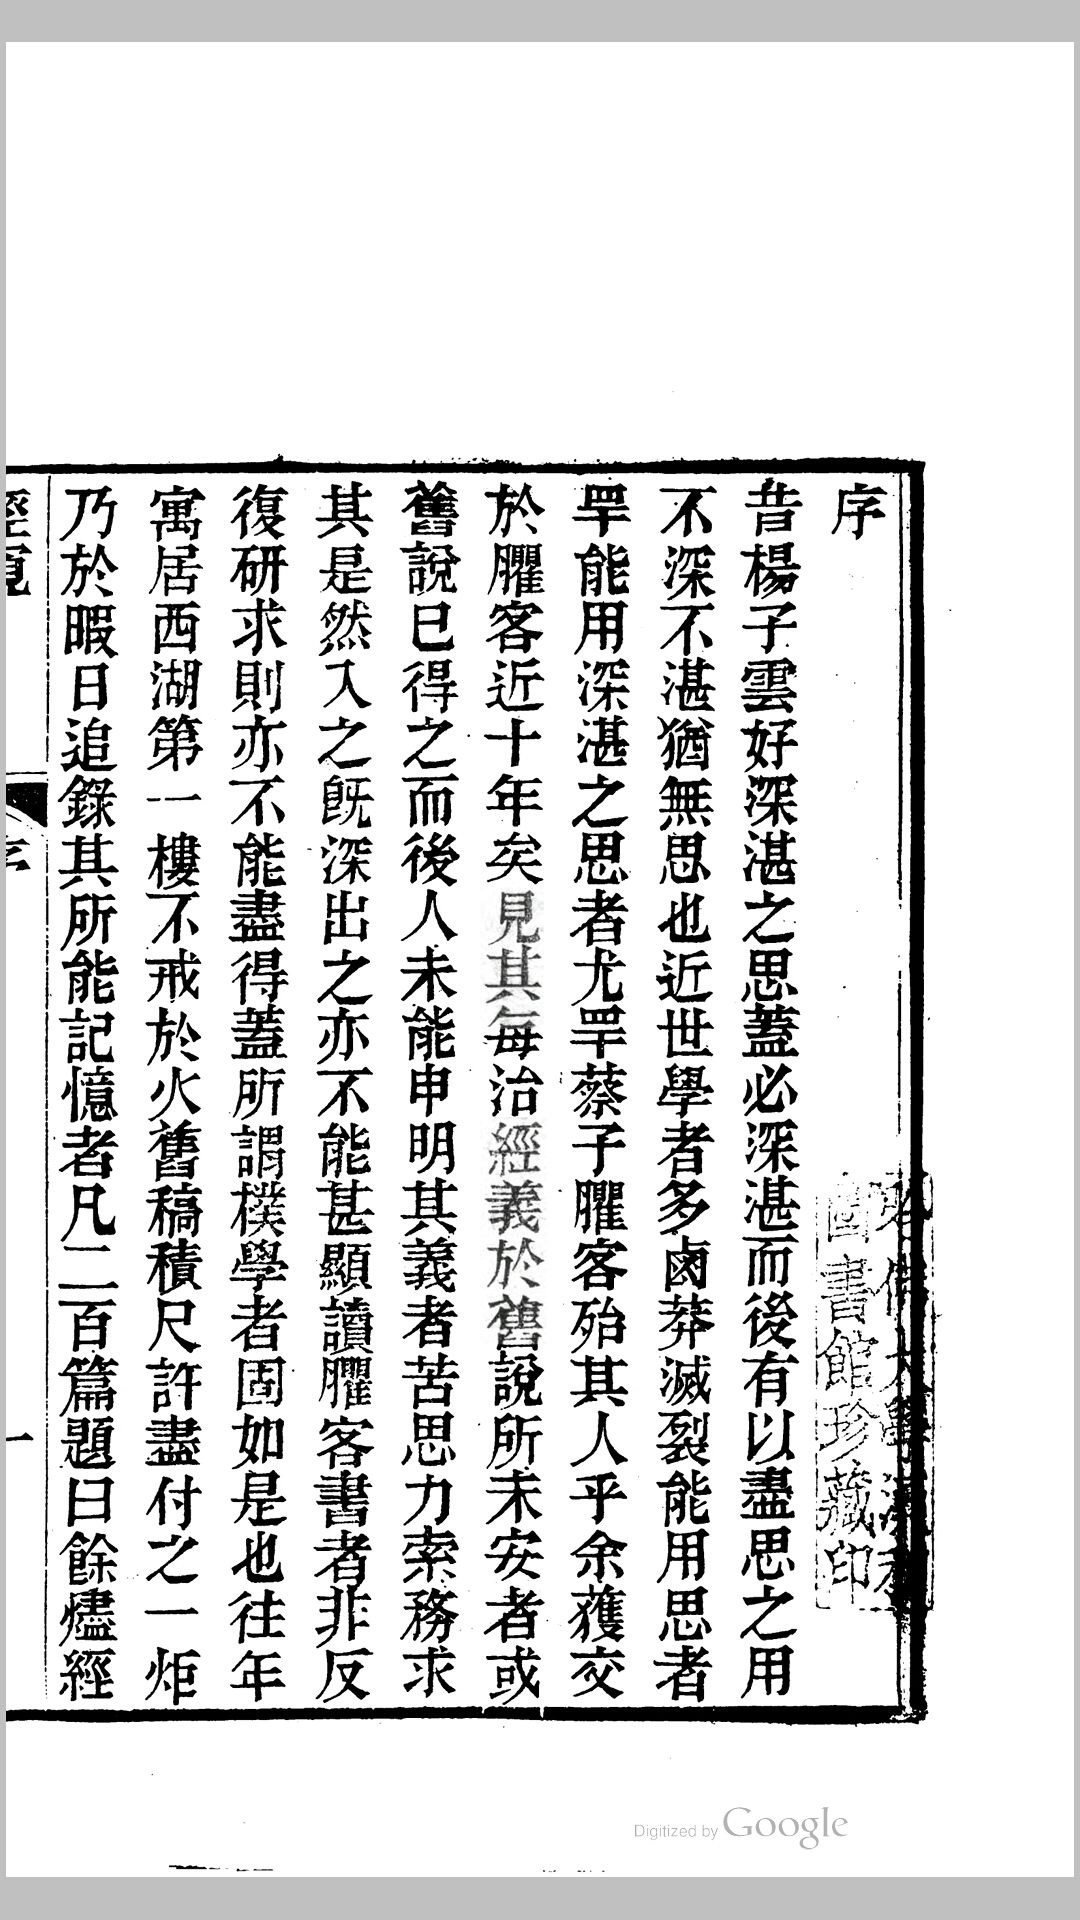 序
昔楊子雲好深湛之思蓋必深湛而後有以盡思之用
不深不湛猶無思也近世學者多鹵莽滅裂能用思者
罕能用深湛之思者尤罕蔡子臞客殆其人乎余獲交
於臞客近十年矣見其每治經義於舊說所未安者或
舊說已得之而後人未能申明其義者苦思力索務求
其是然入之旣深出之亦不能甚顯讀臞客書者非反
復研求則亦不能盡得蓋所謂樸學者固如是也往年
寓居西湖第一樓不戒於火舊稿積尺許盡付之一炬
乃於暇日追錄其所能記憶者凡二百篇題曰餘燼經
一
圖書館珍藏印
Digitized by Google